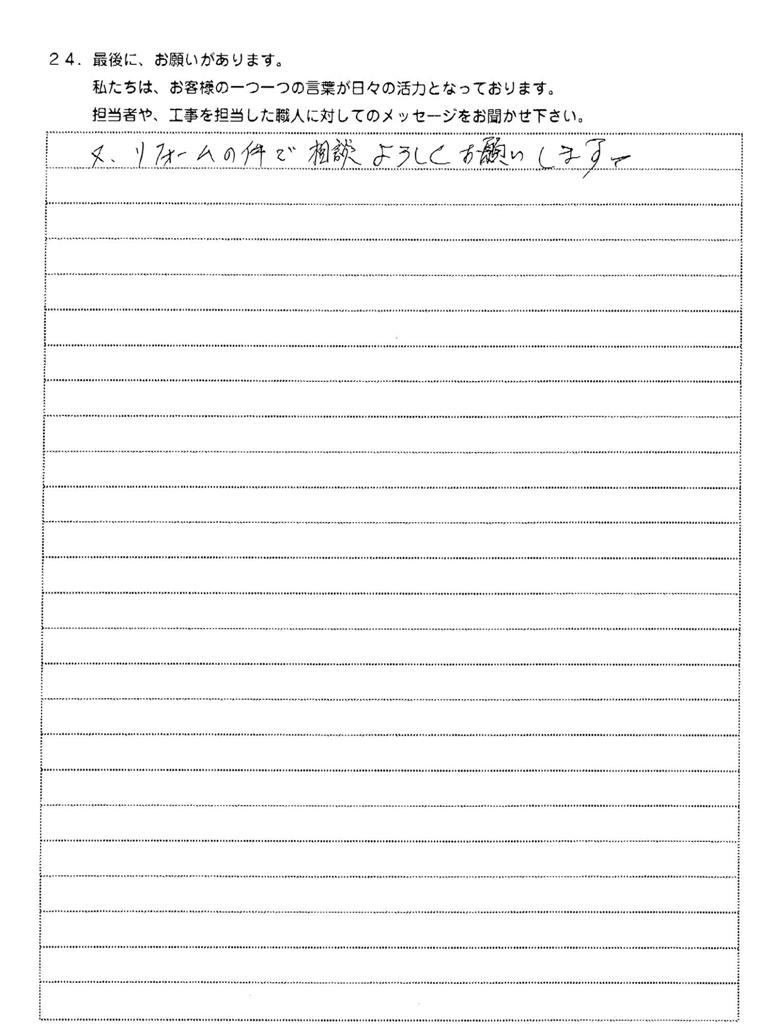 24. 最後に、お願いがあります。
私たちは、お客様の一つ一つの言葉が日々の活力となっております。
担当者や、工事を担当した職人に対してのメッセージをお聞かせ下さい。
又、リフォームの件で相談よろしくお願いします。